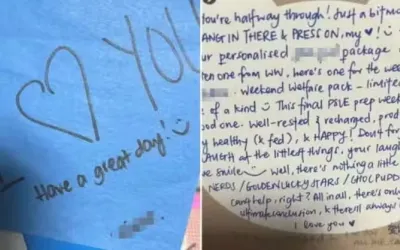 ♡ YOU
Have a great day! :)
You're halfway through! Just a bit mo
HANG IN THERE & PRESS ON, my ♥! :)
our personalised package
en one from WW, here's one for the wee
Weekend Welfare pack - limited
of a kind :) This final PSLE prep week
ood one. Well-rested & recharged, pred
y healthy (& fed), & HAPPY! Don't for
LAUGH at the littlest things, your laugh
me smile :) Well, there's nothing a little
NERDS/GOLDEN LUCKY STARS/CHOC PUDD
can't help, right? All in all, there's only
ultimate conclusion, & there'll always
I love you ♥